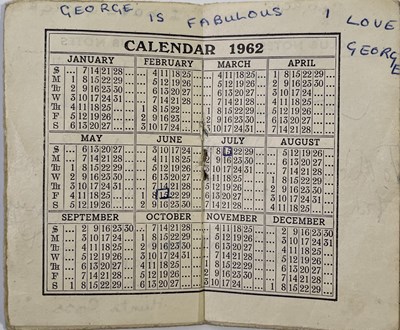 GEORGE IS FABULOUS I LOVE
GEORGE
CALENDAR 1962
JANUARY FEBRUARY MARCH APRIL
S ... 7 14 21 28 ... 4 11 18 25 ... 4 11 18 25 1 8 15 22 29
M 1 8 15 22 29 ... 5 12 19 26 ... 5 12 19 26 2 9 16 23 30
Tu 2 9 16 23 30 ... 6 13 20 27 ... 6 13 20 27 3 10 17 24
W 3 10 17 24 31 ... 7 14 21 28 ... 7 14 21 28 4 11 18 25
Th 4 11 18 25 1 8 15 22 1 8 15 22 29 5 12 19 26
F 5 12 19 26 2 9 16 23 2 9 16 23 30 6 13 20 27
S 6 13 20 27 3 10 17 24 3 10 17 24 31 7 14 21 28
MAY JUNE JULY AUGUST
S ... 6 13 20 27 ... 3 10 17 24 1 8 15 22 29 ... 5 12 19 26
M ... 7 14 21 28 ... 4 11 18 25 2 9 16 23 30 ... 6 13 20 27
Tu 1 8 15 22 29 ... 5 12 19 26 3 10 17 24 31 ... 7 14 21 28
W 2 9 16 23 30 ... 6 13 20 27 4 11 18 25 1 8 15 22 29
Th 3 10 17 24 31 ... 7 14 21 28 5 12 19 26 2 9 16 23 30
F 4 11 18 25 1 8 15 22 29 6 13 20 27 3 10 17 24 31
S 5 12 19 26 2 9 16 23 30 7 14 21 28 4 11 18 25
SEPTEMBER OCTOBER NOVEMBER DECEMBER
S ... 2 9 16 23 30 ... 7 14 21 28 ... 4 11 18 25 ... 2 9 16 23 30
M ... 3 10 17 24 1 8 15 22 29 ... 5 12 19 26 ... 3 10 17 24 31
Tu ... 4 11 18 25 2 9 16 23 30 ... 6 13 20 27 ... 4 11 18 25
W ... 5 12 19 26 3 10 17 24 31 ... 7 14 21 28 ... 5 12 19 26
Th ... 6 13 20 27 4 11 18 25 1 8 15 22 29 ... 6 13 20 27
F ... 7 14 21 28 5 12 19 26 2 9 16 23 30 ... 7 14 21 28
S 1 8 15 22 29 6 13 20 27 3 10 17 24 1 8 15 22 29